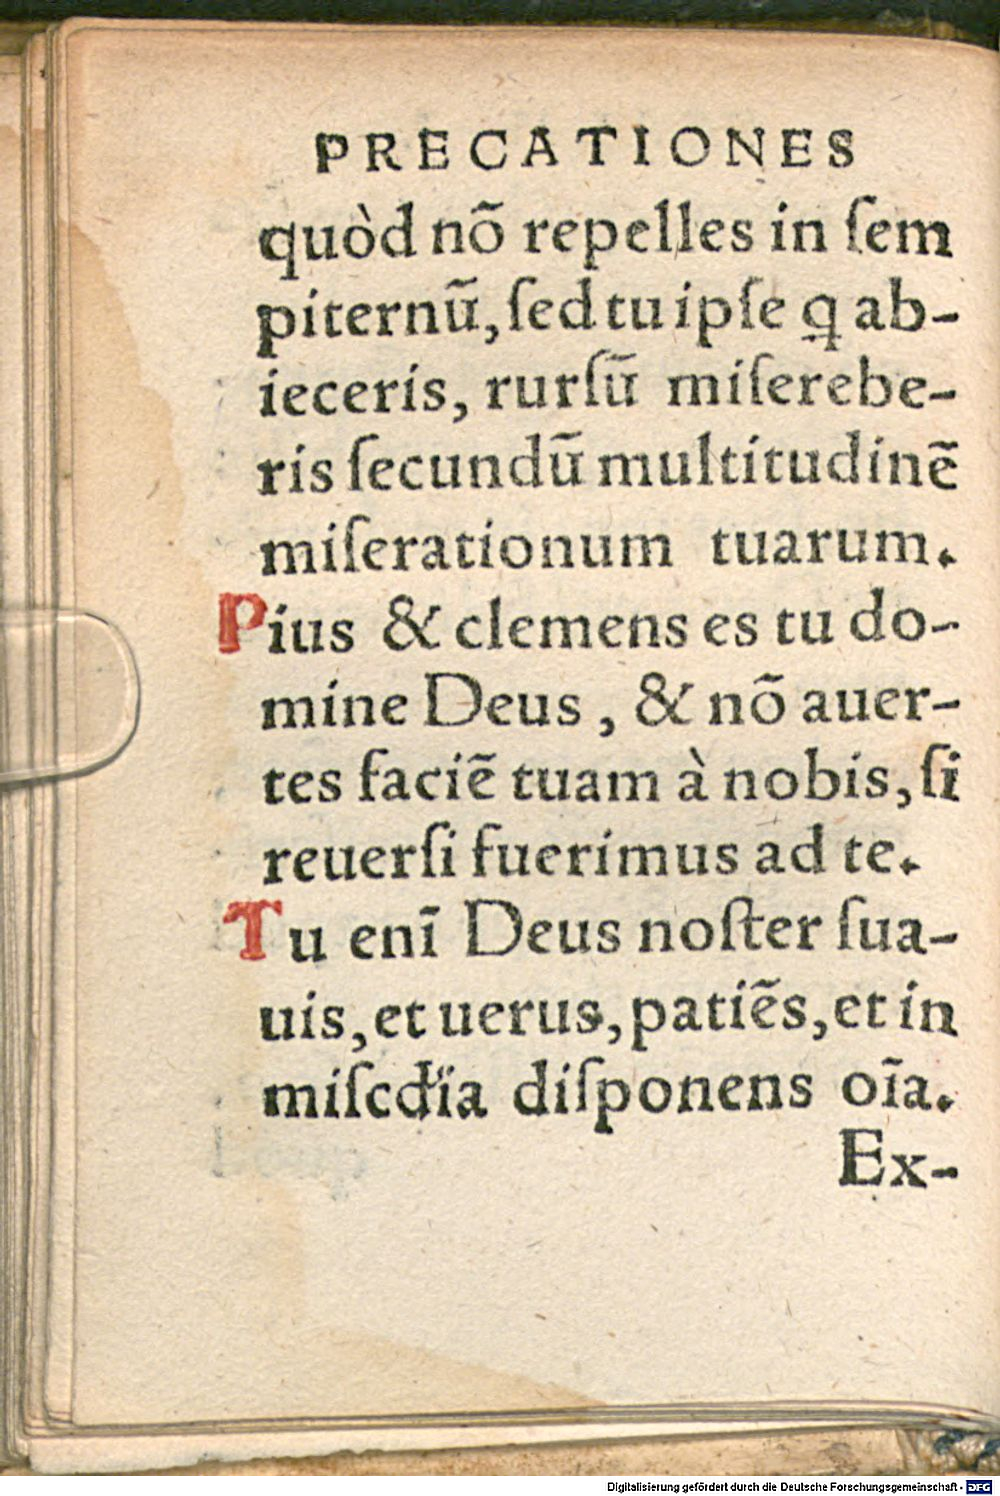 PRECATIONES
quòd nõ repelles in ſem
piternũ, ſed tu ipſe ꝗ ab-
ieceris, rurſũ miſerebe-
ris ſecundũ multitudinẽ
miſerationum tuarum.
Pius & clemens es tu do-
mine Deus, & nõ auer-
tes faciẽ tuam à nobis, ſi
reuerſi fuerimus ad te.
Tu enĩ Deus noſter ſua-
uis, et uerus, patiẽs, et in
miſcdĩa diſponens oĩa.
Ex-
Digitalisierung gefördert durch die Deutsche Forschungsgemeinschaft - DFG